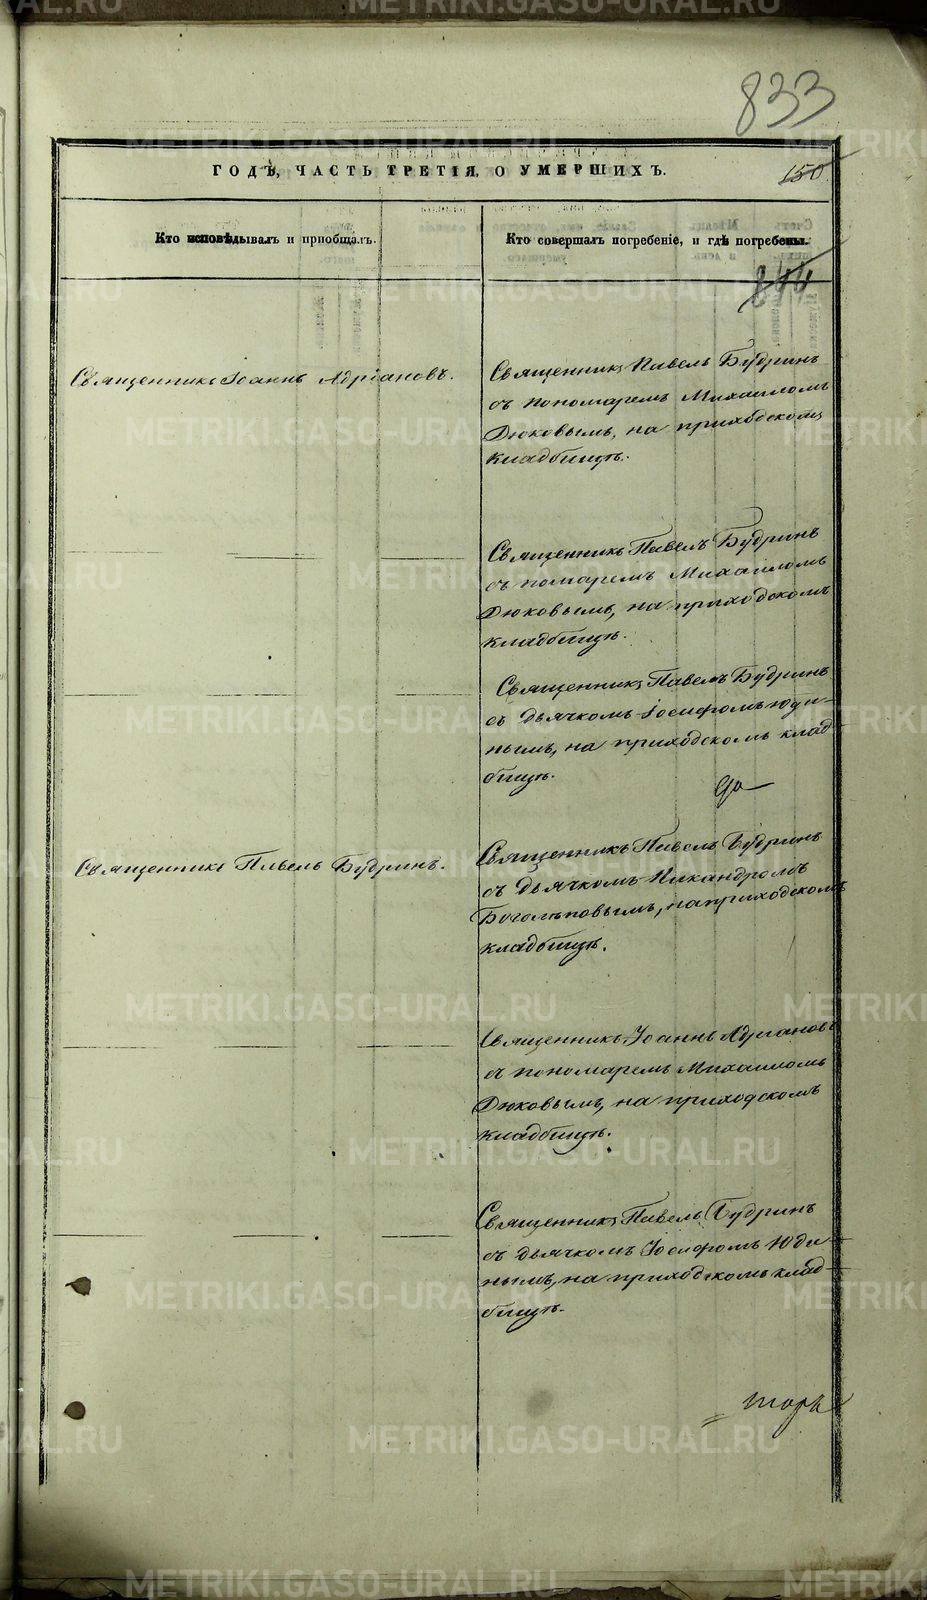 833
ГОДЪ, ЧАСТЬ ТРЕТІЯ, О УМЕРШИХЪ.
150
Кто исповѣдывалъ и пріобщалъ.
Кто совершалъ погребеніе, и гдѣ погребены.
844
Священникъ Іоаннъ Адріановъ.
Священникъ Павелъ Будринъ
съ пономаремъ Михаиломъ
Дюковымъ, на приходскомъ
кладбищѣ.
Священникъ Павелъ Будринъ
съ помаремъ Михаиломъ
Дюковымъ, на приходскомъ
кладбищѣ.
Священникъ Павелъ Будринъ
съ дьячкомъ Іосифомъ Юди-
нымъ, на приходскомъ клад-
бищѣ.
Священникъ Павелъ Будринъ.
Священникъ Павелъ Будринъ
съ дьячкомъ Никандромъ
Боголѣповымъ, на приходскомъ
кладбищѣ.
Священникъ Іоаннъ Адріановъ
съ пономаремъ Михаиломъ
Дюковымъ, на приходскомъ
кладбищѣ.
Священникъ Павелъ Будринъ
съ дьячкомъ Іосифомъ Юди-
нымъ, на приходскомъ клад-
бищѣ.
METRIKI.GASO-URAL.RU